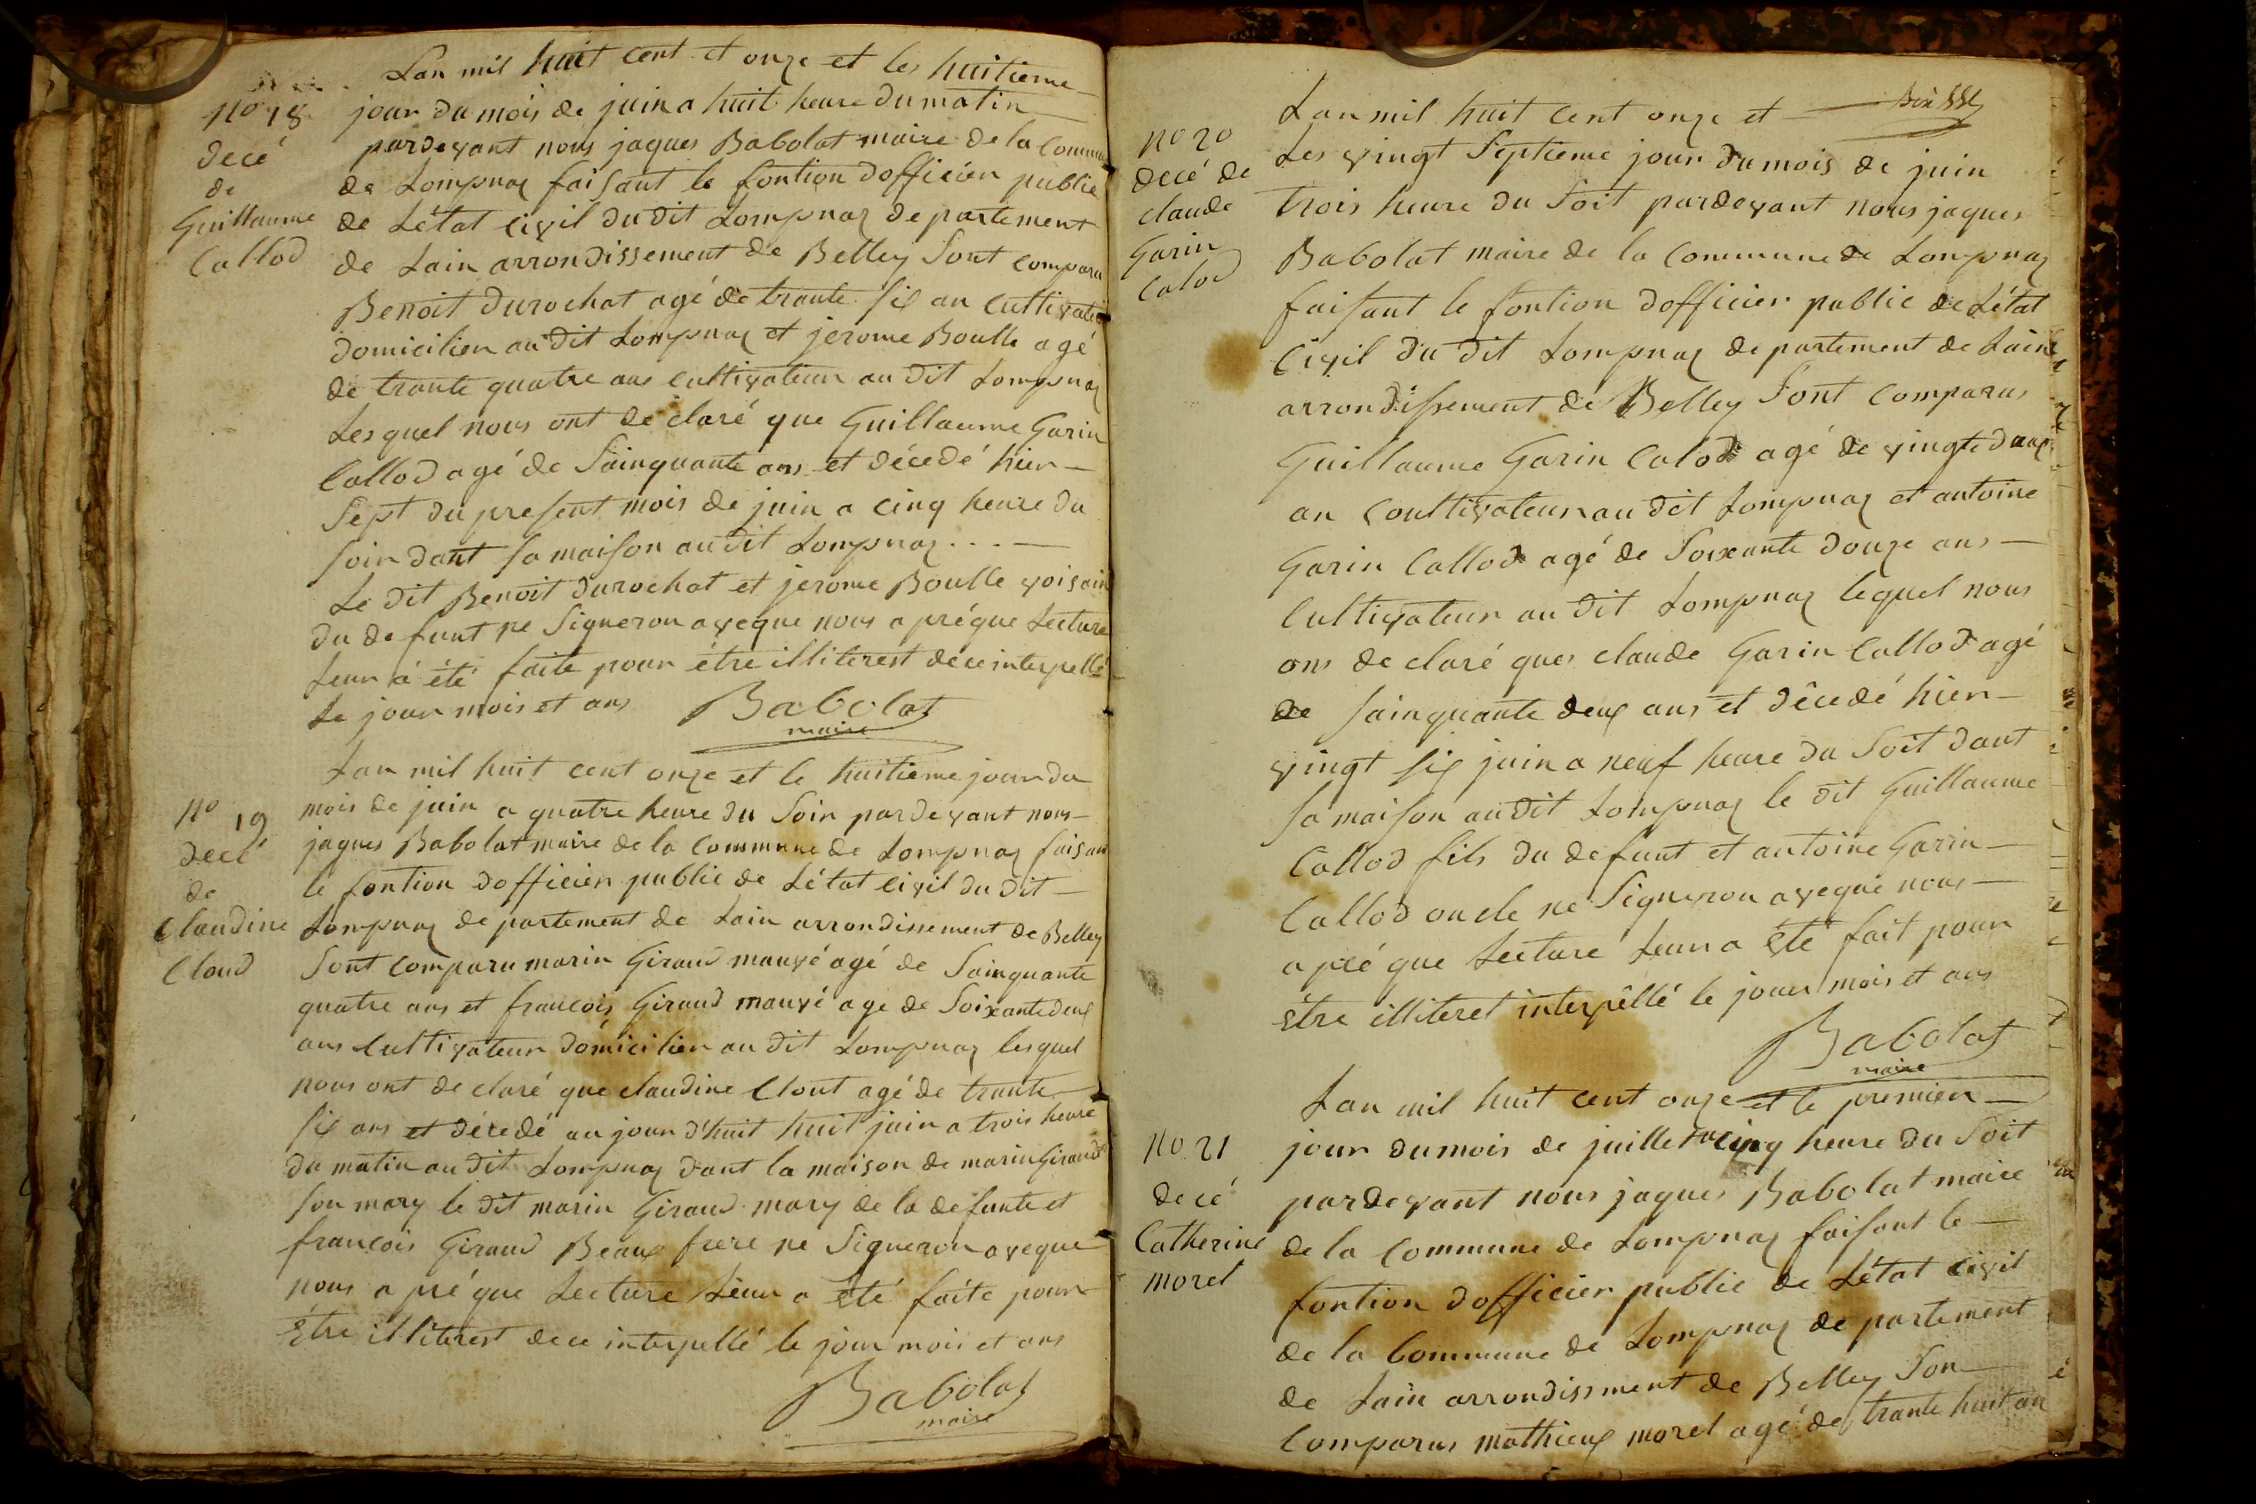 Lan mil huit cent et onze et les huitieme
no 18 jour du mois de juin a huit heure du matin
decé pardevant nous jaques Babolat maire de la Commune
de de Lompnaz faisant le fontion dofficier public
Guillaume de Létat civil du dit Lompnaz departement
Callod de Lain arrondissement de Belley Sont comparu
Benoit durochat agé de trante six an Cultivateu
domicilien au dit Lompnaz et jerome Boulle agé
de trante quatre ans cultivateur au dit Lompnaz
Lesquel nous ont de claré que Guillaume Garin
Callod agé de Sainquante ans et décedé hier
Sept du present mois de juin a cinq heure du
soir dant sa maison au dit Lompnaz
Le dit Benoit durochat et jerome Boulle voisain
du defunt ne Signeron aveque nous a préque Lecture
Leur á été faite pour être illiterest dece interpellé
Le jour mois et ans Babolat
maire
Lan mil huit cent onze et le huitieme jour du
no 19 mois de juin a quatre heure du Soir pardevant nous
decé jaques Babolat maire de la Commune de Lompnaz faisan
de le fontion dofficier public de Létat civil du dit
Claudine Lompnaz de partement de Lain arrondissement de Belley
Cloud Sont comparu marin Giraud mauvé agé de Sainquante
quatre ans et francois Giraud mauvé age de Soixante deux
ans Cultivateur domicilien au dit Lompnaz lesquel
nous ont de claré que claudine Clout agé de trante
six ans et décedé au jour d'huit huit juin a trois heure
du matin au dit Lompnaz dant la maison de marin Giraud
son mary le dit marin Giraud mary de la defunte et
francois Giraud Beaux frere ne Signeron aveque
nous a pré que Lecture Leur a été faite pour
Être illiterest dece interpellé le jour mois et ans
Babolat
maire
Lan mil huit cent onze et
no 20 Les vingt Septieme jour du mois de juin
decé de trois heure du Soit pardevant nous jaques
claude Babolat maire de la Commune de Lompnaz
Garin faisant le fontion dofficier public de Létat
Calod civil du dit Lompnaz de partement de Lain
arrondissement de Belley Sont Comparus
Guillaume Garin Calod agé de vingt deux
an Coultivateur au dit Lompnaz et antoine
Garin Callod agé de Soixante douze ans
Cultivateur au dit Lompnaz lequel nous
ons de claré ques claude Garin Callod agé
de Sainquante deux ans et décedé hier
vingt six juin a neuf heure du Soit dant
sa maison au dit Lompnaz le dit Guillaume
Callod fils du defunt et antoine Garin
Callod oncle ne Signeron aveque nous
a pré que Lecture Leur a Été fait pour
Être illiteret interpéllé le jouer mois et ans
Babolat
maire
Lan mil huit cent onze et le premier
no 21 jour du mois de juillet a cinq heure du Soit
decé pardevant nous jaques Babolat maire
Catherine de la Commune de Lompnaz faisant le
morel fontion dofficier public de Létat civil
de la Commune de Lompnaz de partement
de Lain arrondisment de Belley Son
Comparus mathieux morel agé de trante huit an